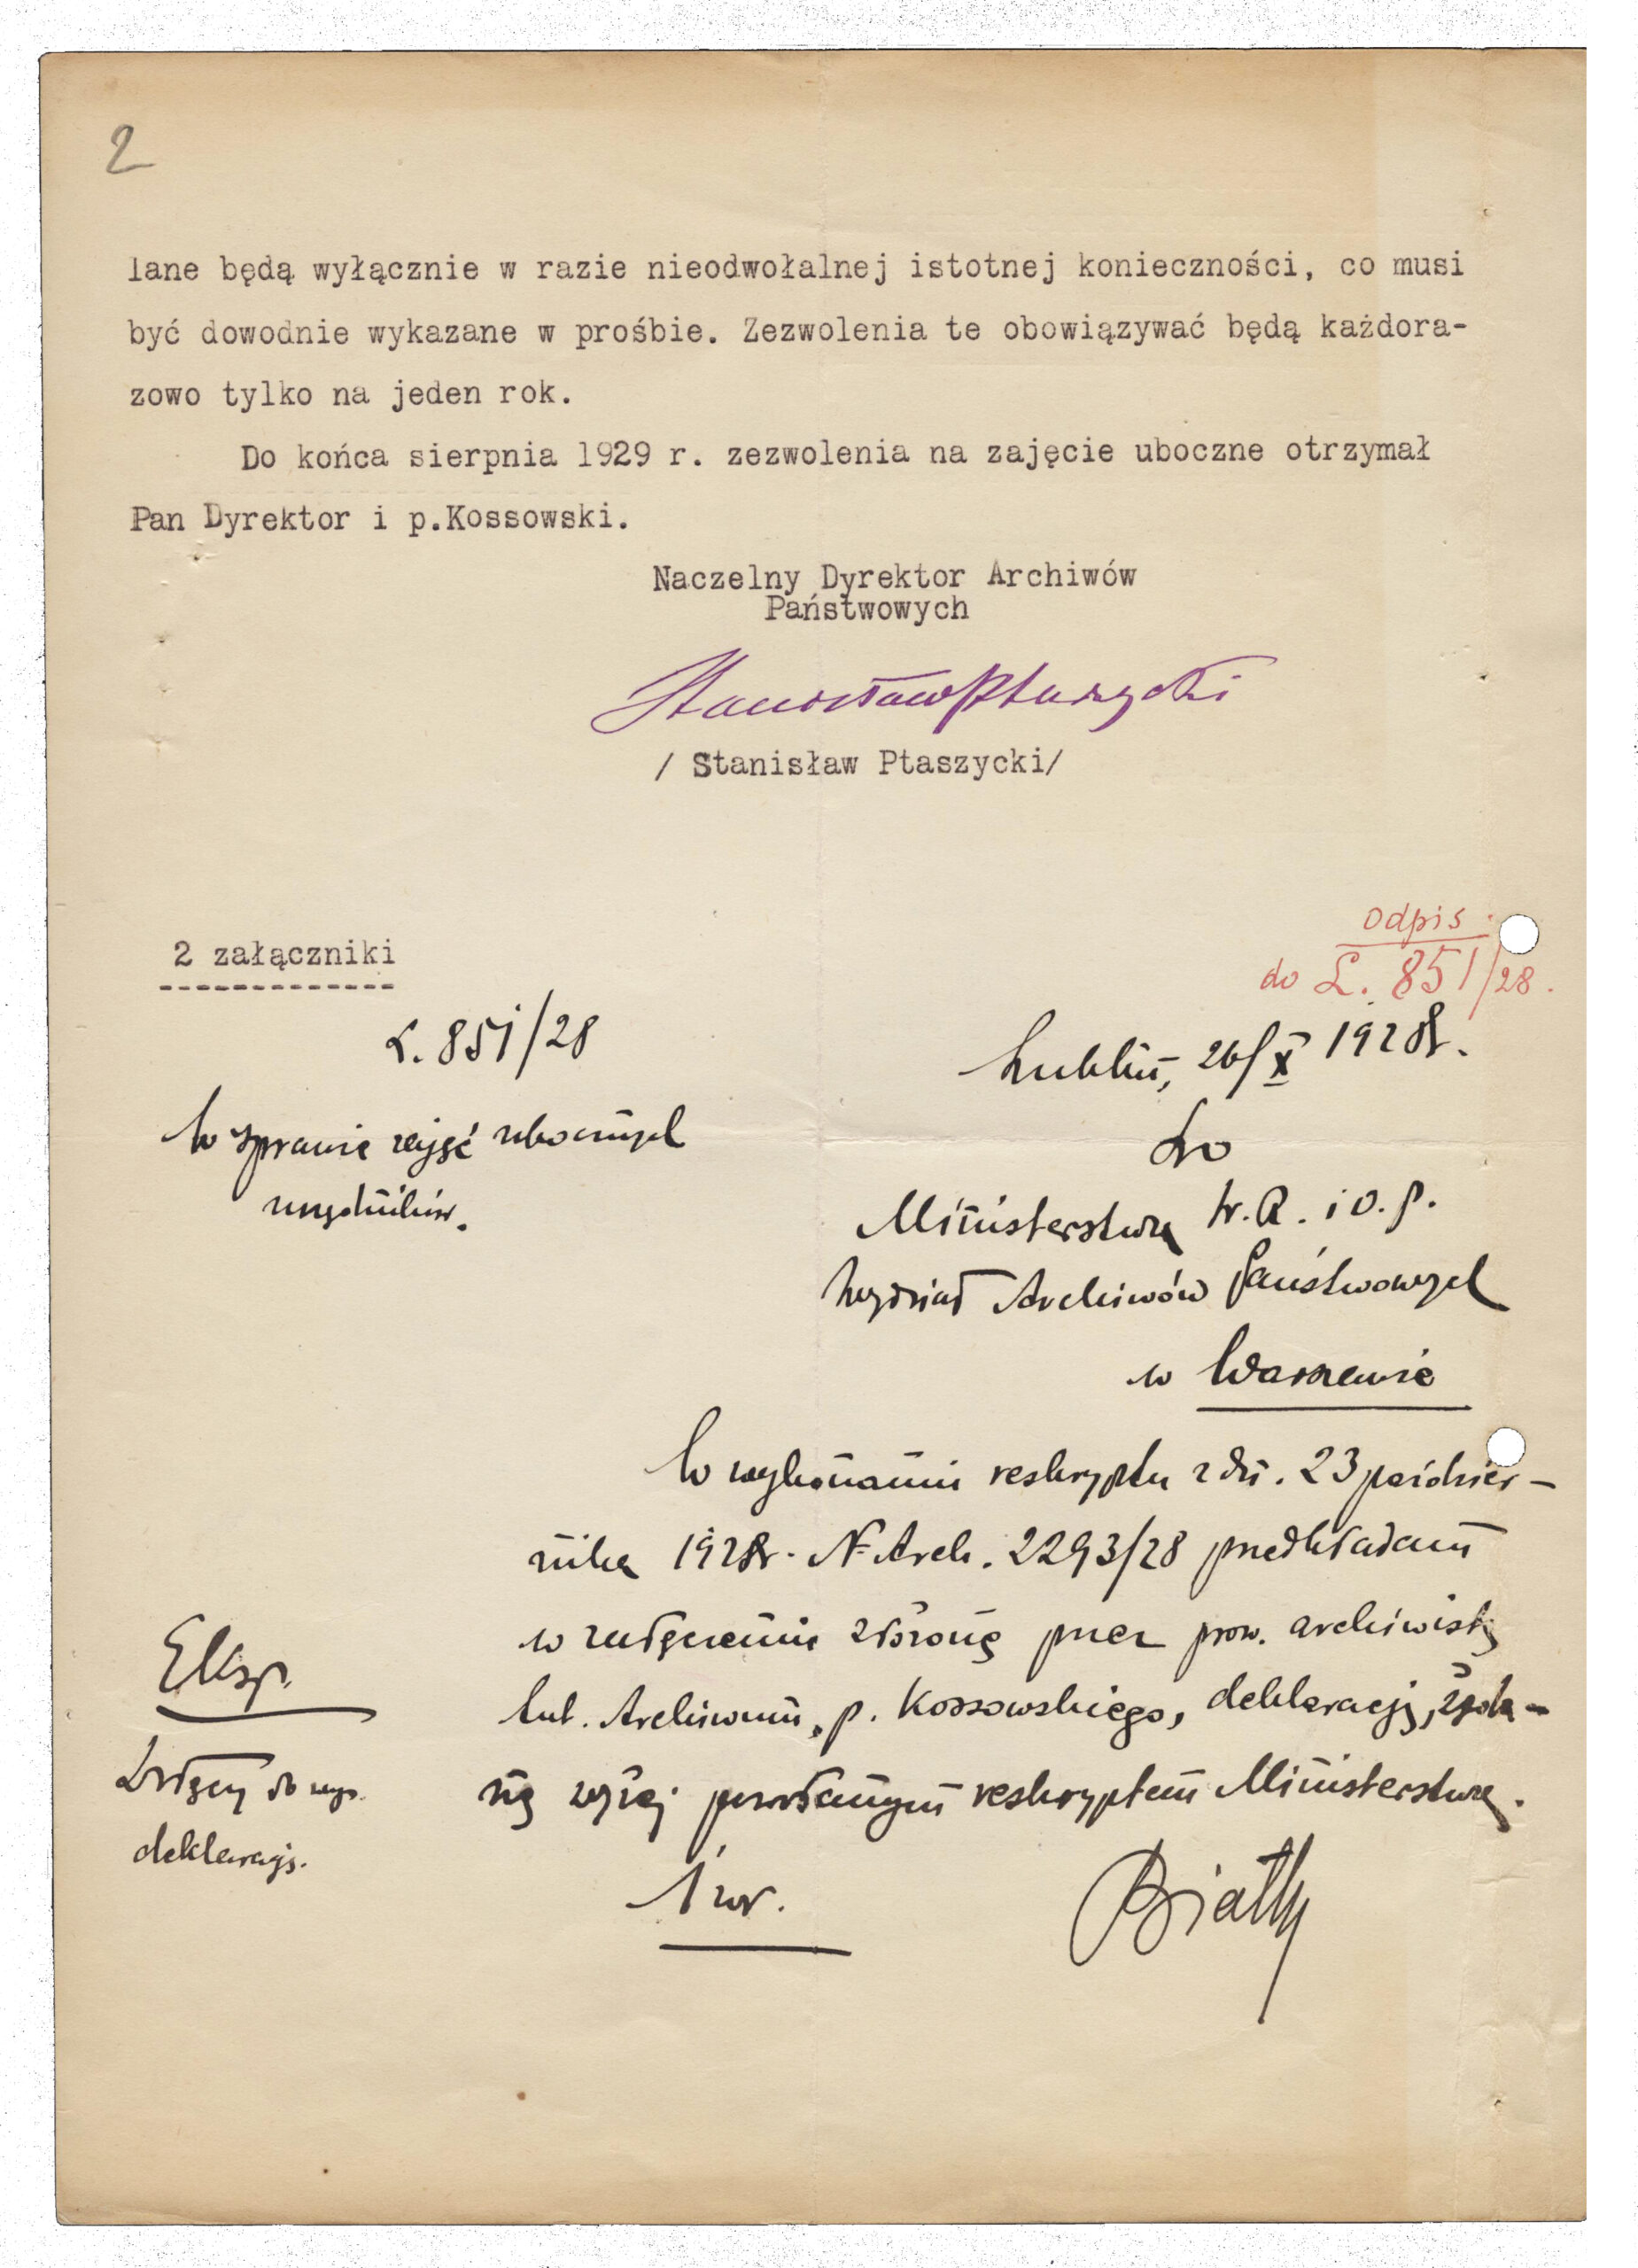 2
lane będą wyłącznie w razie nieodwołalnej istotnej konieczności, co musi
być dowodnie wykazane w prośbie. Zezwolenia te obowiązywać będą każdora-
zowo tylko na jeden rok.
Do końca sierpnia 1929 r. zezwolenia na zajęcie uboczne otrzymał
Pan Dyrektor i p.Kossowski.
Naczelny Dyrektor Archiwów
Państwowych
Stanisław Ptaszycki
/ Stanisław Ptaszycki/
2 załączniki
odpis
do L. 851/28.
L. 851/28
Lublin, 26/X 1928r.
W sprawie zajęć ubocznych
urzędników.
Do
Ministerstwa W.R. i O.P.
Wydział Archiwów Państwowych
w Warszawie
W wykonaniu reskryptu z dn. 23 paździer-
nika 1928r. N-Arch. 2293/28 przedkładam
w załączeniu złożoną przez prow. archiwistę
lub. Archiwum, p. Kossowskiego, deklarację, żąda-
ną wyżej powołanym reskryptem Ministerstwa.
Eksp.
Załączn do
deklaracją.
1 zał.
Biały